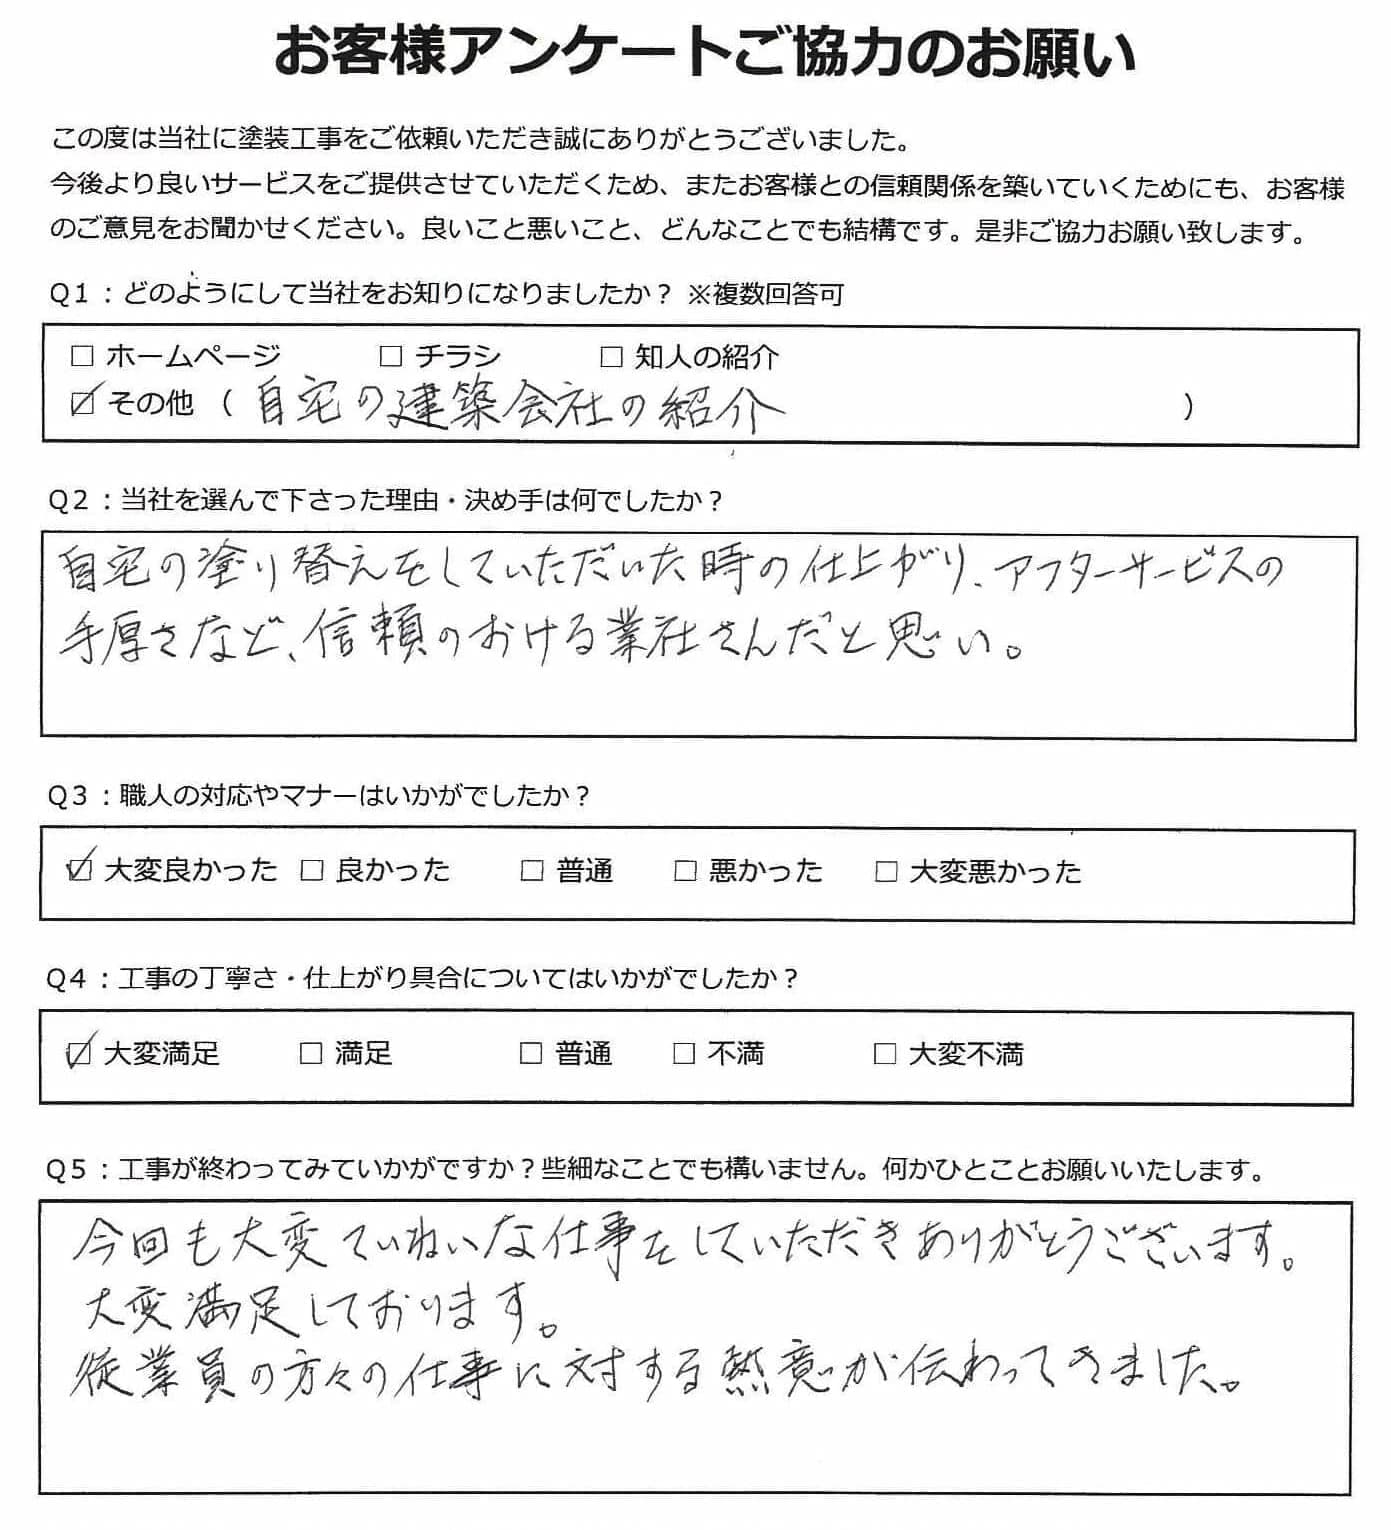 お客様アンケートご協力のお願い
この度は当社に塗装工事をご依頼いただき誠にありがとうございました。
今後より良いサービスをご提供させていただくため、またお客様との信頼関係を築いていくためにも、お客様
のご意見をお聞かせください。良いこと悪いこと、どんなことでも結構です。是非ご協力お願い致します。
Q1：どのようにして当社をお知りになりましたか？ ※複数回答可
□ ホームページ □ チラシ □ 知人の紹介
☑ その他 （ 自宅の建築会社の紹介 ）
Q2：当社を選んで下さった理由・決め手は何でしたか？
自宅の塗り替えをしていただいた時の仕上がり、アフターサービスの
手厚さなど、信頼のおける業社さんだと思い。
Q3：職人の対応やマナーはいかがでしたか？
☑ 大変良かった □ 良かった □ 普通 □ 悪かった □ 大変悪かった
Q4：工事の丁寧さ・仕上がり具合についてはいかがでしたか？
☑ 大変満足 □ 満足 □ 普通 □ 不満 □ 大変不満
Q5：工事が終わってみていかがですか？些細なことでも構いません。何かひとことお願いいたします。
今回も大変ていねいな仕事をしていただきありがとうございます。
大変満足しております。
従業員の方々の仕事に対する熱意が伝わってきました。